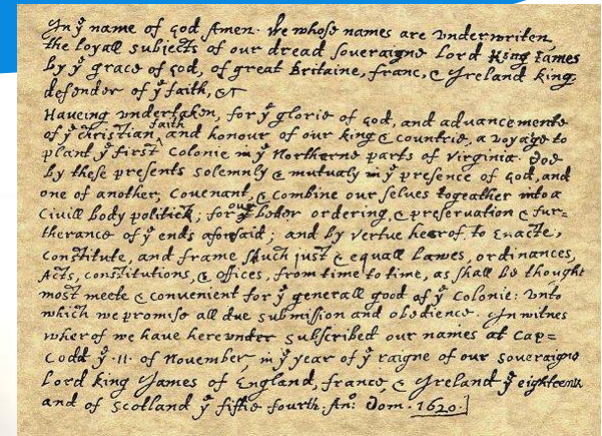 In yͤ name of god Amen. We whose names are vnderwriten,
the loyall subjects of our dread soveraigne Lord King Iames
by yͤ grace of god, of great Britaine, franc, & Ireland king,
defender of yͤ faith, &c
Haveing vndertaken, for yͤ glorie of god, and advancemente
of yͤ christian faith and honour of our king & countrie, a voyage to
plant yͤ first colonie in yͤ Northerne parts of Virginia. Doe
by these presents solemnly & mutualy in yͤ presence of god, and
one of another, covenant, & combine our selves togeather into a
civill body politick; for our better ordering, & preservation & fur=
therance of yͤ ends aforesaid; and by vertue hearof to enacte,
constitute, and frame shuch just & equall lawes, ordinances,
Acts, constitutions, & offices, from time to time, as shall be thought
most meete & convenient for yͤ generall good of yͤ colonie: vnto
which we promise all due submission and obedience. In witnes
wherof we have herevnder subscribed our names at Cap=
Codd yͤ .11. of November, in yͤ year of yͤ raigne of our soveraigne
Lord king James of England, france, & Ireland yͤ eighteenth
and of Scotland yͤ fiftie fourth. Anº. Dom. 1620.]